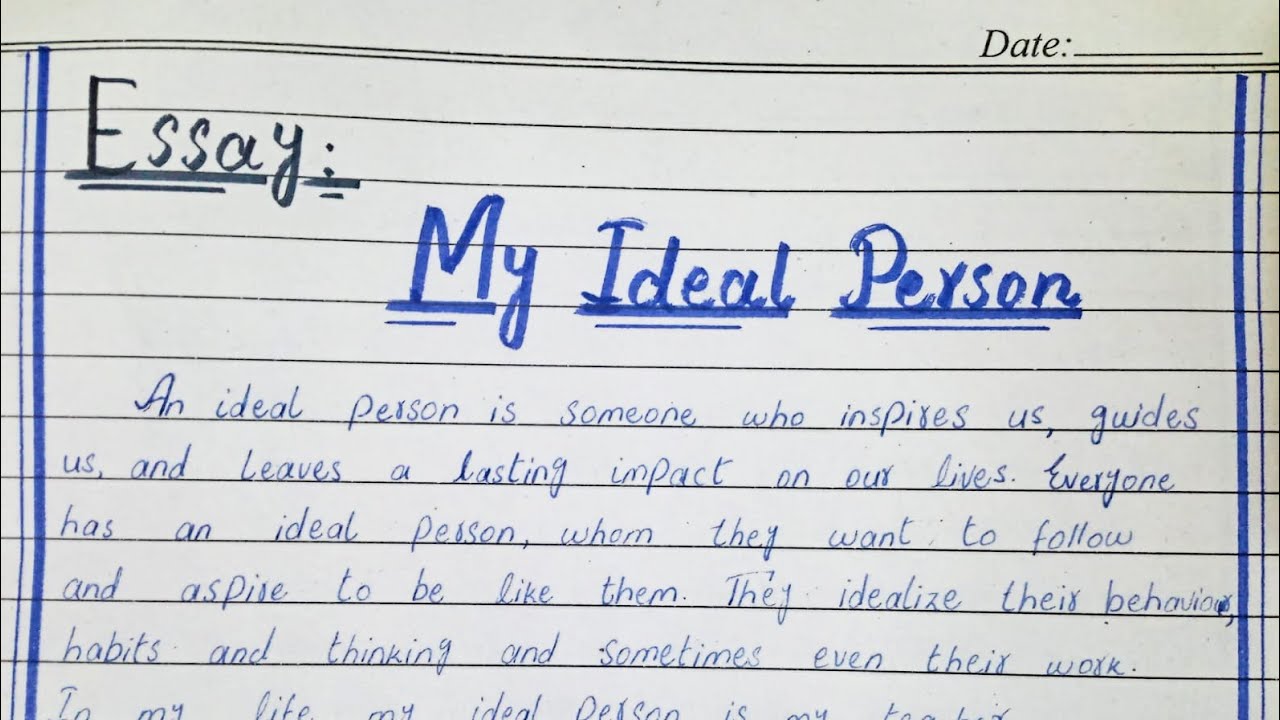 Date:
Essay:
My Ideal Person
An ideal person is someone who inspires us, guides
us, and leaves a lasting impact on our lives. Everyone
has an ideal person, whom they want to follow
and aspire to be like them. They idealize their behaviour,
habits and thinking and sometimes even their work.
In my life my ideal person is my